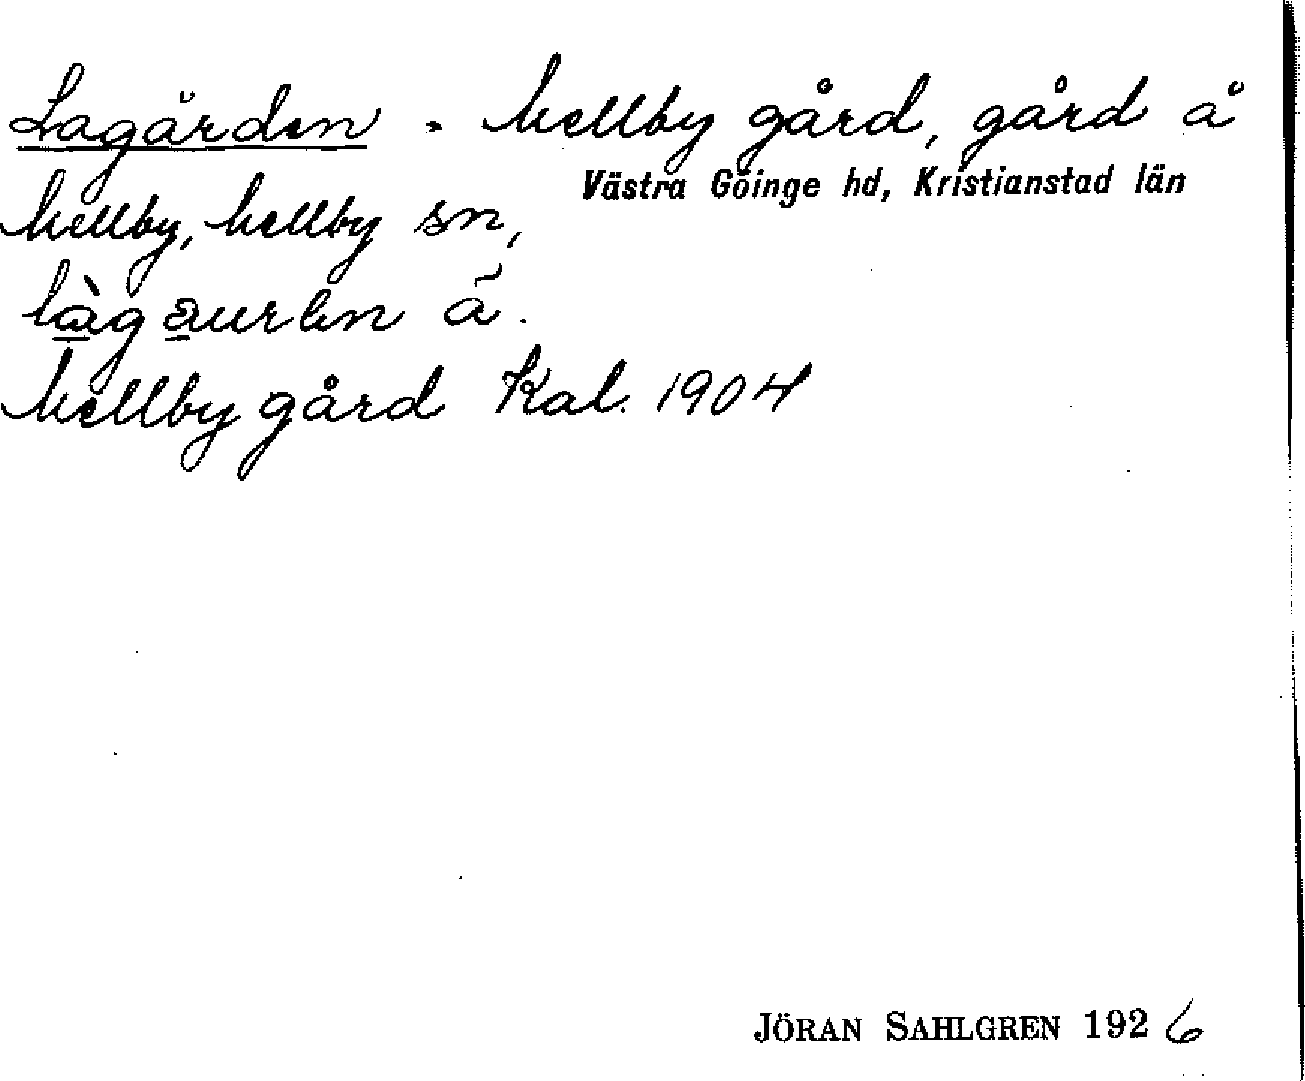 Lagården = Mellby gård, gård å
Västra Göinge hd, Kristianstad län
Mellby, Mellby sn,
å.
Mellby gård Kal. 1904
JÖRAN SAHLGREN 1926